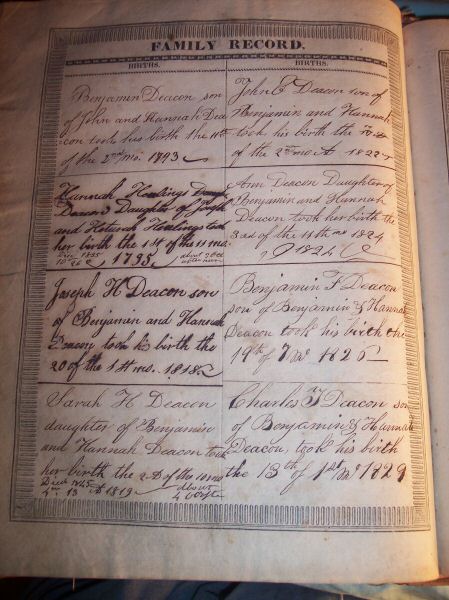 FAMILY RECORD.
BIRTHS.
Benjamin Deacon son
of John and Hannah Dea
con took his birth the 11th
of the 2nd mo. 1793
Hannah Healings
Deacon Daughter of Joseph
and Healings took
her birth the 1st of the 11 mo.
1795
Joseph H Deacon son
of Benjamin and Hannah
Deacon took his birth the
20 of the 1st mo. 1818
Sarah H Deacon
daughter of Benjamin
and Hannah Deacon took
her birth the 2d of the 10 mo
Died 1845 about
4 mo 13 A 1819 4 oclock
BIRTHS.
John C Deacon son of
Benjamin and Hannah
took his birth the
of the 2nd mo A 1822
Ann Deacon Daughter of
Benjamin and Hannah
Deacon took her birth the
3d of the 11th mo 1824
1824
Benjamin F Deacon
son of Benjamin & Hannah
Deacon took his birth the
19th of 7 mo 1826
Charles Deacon son
of Benjamin & Hannah
Deacon, took his birth
the 13th of 1st mo 1829